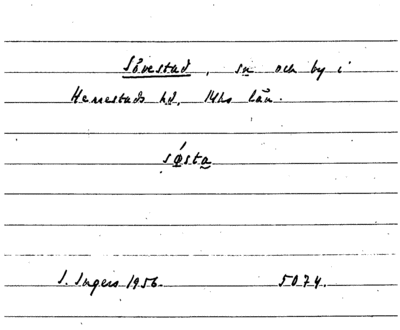 Sövestad, sn och by i
Herrestads hd. Mhs län.
sǿsta
S. Ingers 1956. 5074.